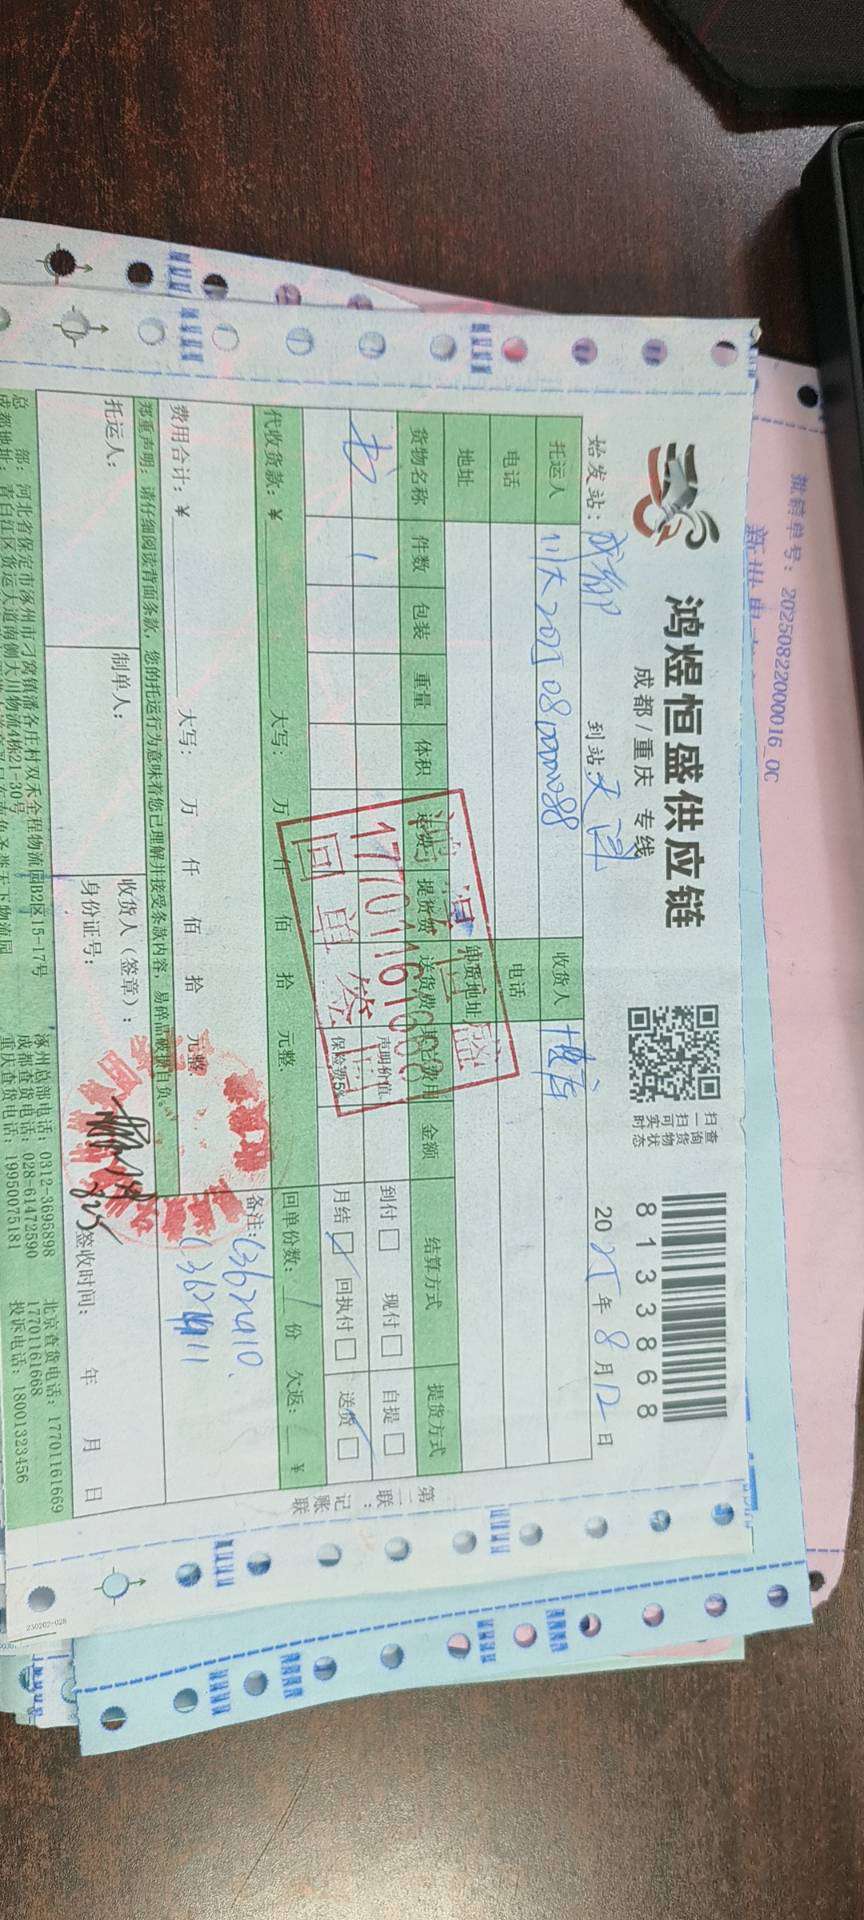 批销单号：2025082200016_0C
鸿煜恒盛供应链
成都/重庆 专线
扫一扫可实时
查询货物状态
8133868
始发站：成都 到站 天津 2025年8月12日
托运人 川大 收货人
电话 电话
地址 卸货地址
货物名称 件数 包装 重量 体积 运费 提货费 送货费 其它费用 金额 结算方式 提货方式
书 1 声明价值 到付 现付 自提
保险费5‰ 月结 回执付 送货
17701161668
回单签
代收货款：￥ 大写： 万 仟 佰 拾 元整 回单份数：1份 欠返： ￥
费用合计：￥ 大写： 万 仟 佰 拾 元整 备注：
郑重声明：请仔细阅读背面条款，您的托运行为意味着您已理解并接受条款内容，易碎品破损自负。
托运人： 制单人： 收货人（签章）：
身份证号： 签收时间： 年 月 日
825
总 部：河北省保定市涿州市刁窝镇潘各庄村双禾全程物流园B2区15-17号 涿州总部电话：0312-3695898 北京查货电话：17701161669
成都地址：青白江区货运大道南侧大川物流4栋21-30号 成都查货电话：028-61472590 17701161668
重庆查货电话：19950075181 投诉电话：18001323456
第一联：记账联
230202-028